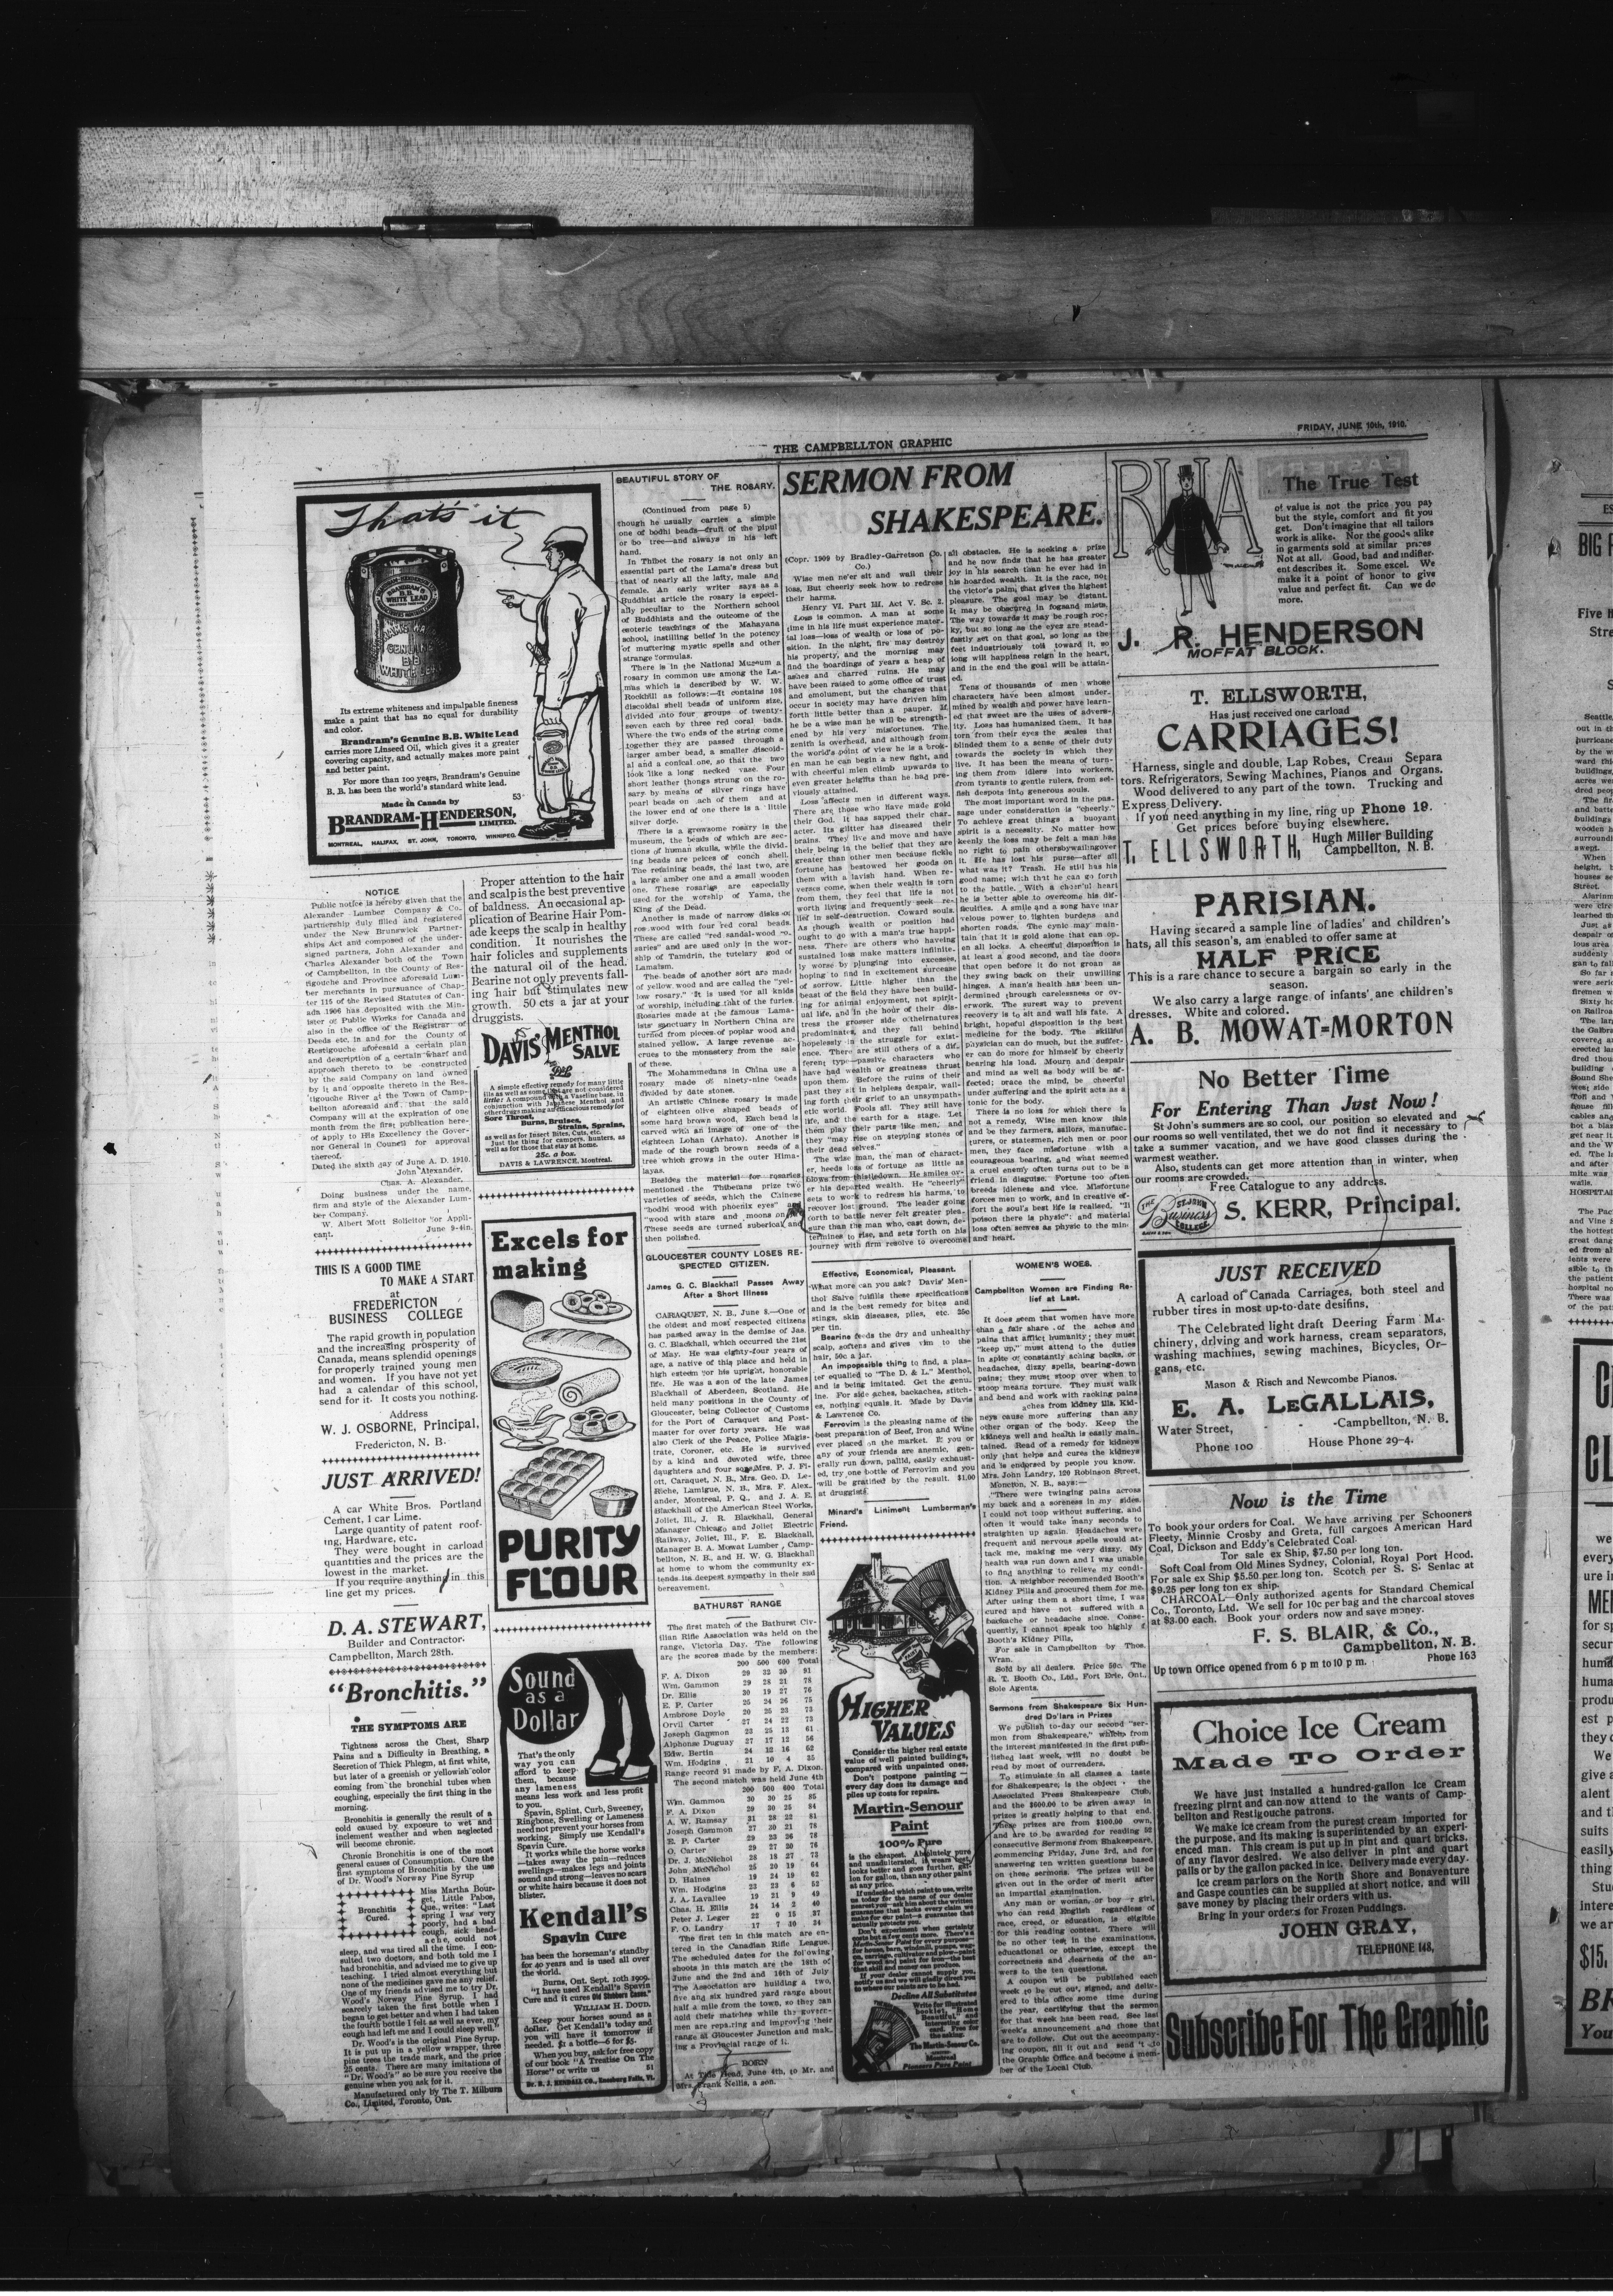 THE CAMPBELLTON GRAPHIC
FRIDAY, JUNE 10th, 1910.
That's it
Its extreme whiteness and impalpable fineness
make a paint that has no equal for durability
and color.
Brandram's Genuine B.B. White Lead
carries more Linseed Oil, which gives it a greater
covering capacity, and actually makes more paint
and better paint.
For more than 100 years, Brandram's Genuine
B. B. has been the world's standard white lead.
53
Made in Canada by
BRANDRAM-HENDERSON,
LIMITED.
MONTREAL, HALIFAX, ST. JOHN, TORONTO, WINNIPEG.
NOTICE
Public notice is hereby given that the
Alexander Lumber Company & Co.
partnership duly filled and registered
under the New Brunswick Partner-
ships Act and composed of the under-
signed partners, John Alexander and
Charles Alexander both of the Town
of Campbellton, in the County of Res-
tigouche and Province aforesaid Lum-
ber merchants in pursuance of Chap-
ter 115 of the Revised Statutes of Can-
ada 1906 has deposited with the Min-
ister of Public Works for Canada and
also in the office of the Registrar of
Deeds etc. in and for the County of
Restigouche aforesaid a certain plan
and description of a certain wharf and
approach thereto to be constructed
by the said Company on land owned
by it and opposite thereto in the Res-
tigouche River at the Town of Camp-
bellton aforesaid and that the said
Company will at the expiration of one
month from the first publication here-
of apply to His Excellency the Gover-
nor General in Council for approval
thereof.
Dated the sixth gay of June A. D. 1910.
John Alexander,
Chas. A. Alexander.
Doing business under the name,
firm and style of the Alexander Lum-
ber Company.
W. Albert Mott Solicitor for Appli-
cant. June 9-4in.
THIS IS A GOOD TIME
TO MAKE A START
at
FREDERICTON
BUSINESS COLLEGE
The rapid growth in population
and the increasing prosperity of
Canada, means splendid openings
for properly trained young men
and women. If you have not yet
had a calendar of this school,
send for it. It costs you nothing.
Address
W. J. OSBORNE, Principal,
Fredericton, N. B.
JUST ARRIVED!
A car White Bros. Portland
Cement, 1 car Lime.
Large quantity of patent roof-
ing, Hardware, etc.
They were bought in carload
quantities and the prices are the
lowest in the market.
If you require anything in this
line get my prices.
D. A. STEWART,
Builder and Contractor.
Campbellton, March 28th.
"Bronchitis."
THE SYMPTOMS ARE
Tightness across the Chest, Sharp
Pains and a Difficulty in Breathing, a
Secretion of Thick Phlegm, at first white,
but later of a greenish or yellowish color
coming from the bronchial tubes when
coughing, especially the first thing in the
morning.
Bronchitis is generally the result of a
cold caused by exposure to wet and
inclement weather and when neglected
will become chronic.
Chronic Bronchitis is one of the most
general causes of Consumption. Cure the
first symptoms of Bronchitis by the use
of Dr. Wood's Norway Pine Syrup
Bronchitis
Cured.
Miss Martha Bour-
get, Little Pabos,
Que., writes: "Last
spring I was very
poorly, had a bad
cough, sick head-
ache, could not
sleep, and was tired all the time. I con-
sulted two doctors, and both told me I
had bronchitis, and advised me to give up
teaching. I tried almost everything but
none of the medicines gave me any relief.
One of my friends advised me to try Dr.
Wood's Norway Pine Syrup. I had
scarcely taken the first bottle when I
began to get better and when I had taken
the fourth bottle I felt as well as ever, my
cough had left me and I could sleep well."
Dr. Wood's is the original Pine Syrup.
It is put up in a yellow wrapper, three
pine trees the trade mark, and the price
25 cents. There are many imitations of
"Dr. Wood's" so be sure you receive the
genuine when you ask for it.
Manufactured only by The T. Milburn
Co., Limited, Toronto, Ont.
Proper attention to the hair
and scalp is the best preventive
of baldness. An occasional ap-
plication of Bearine Hair Pom-
ade keeps the scalp in healthy
condition. It nourishes the
hair follicles and supplements
the natural oil of the head.
Bearine not only prevents fall-
ing hair but stimulates new
growth. 50 cts a jar at your
druggists.
DAVIS' MENTHOL
SALVE
A simple effective remedy for many little
ills as well as some that are not considered
little: A compound with a Vaseline base, in
conjunction with Japanese Menthol and
other drugs making an efficacious remedy for
Sore Throat,
Burns, Bruises,
Strains, Sprains,
as well as for Insect Bites, Cuts, etc.
Just the thing for campers, hunters, as
well as for those that stay at home.
25c. a box.
DAVIS & LAWRENCE, Montreal.
Excels for
making
PURITY
FLOUR
Sound
as a
Dollar
That's the only
way you can
afford to keep
them, because
any lameness
means less work and less profit
to you.
Spavin, Splint, Curb, Sweeney,
Ringbone, Swelling or Lameness
need not prevent your horses from
working. Simply use Kendall's
Spavin Cure.
It works while the horse works
—takes away the pain—reduces
swellings—makes legs and joints
sound and strong—leaves no scars
or white hairs because it does not
blister.
Kendall's
Spavin Cure
has been the horseman's standby
for 40 years and is used all over
the world.
Burns, Ont. Sept. 10th 1909.
"I have used Kendall's Spavin
Cure and it cures
WILLIAM H. DOUD.
Keep your horses sound as a
dollar. Get Kendall's today and
you will have it tomorrow if
needed. $1 a bottle—6 for $5.
When you buy, ask for free copy
of our book "A Treatise On The
Horse" or write us 51
Dr. B. J. KENDALL CO., Enosburg Falls, Vt.
BEAUTIFUL STORY OF
THE ROSARY.
(Continued from page 5)
though he usually carries a simple
one of bodhi beads—fruit of the pipul
or bo tree—and always in his left
hand.
In Thibet the rosary is not only an
essential part of the Lama's dress but
that of nearly all the laity, male and
female. An early writer says as a
Buddhist article the rosary is especi-
ally peculiar to the Northern school
of Buddhists and the outcome of the
esoteric teachings of the Mahayana
school, instilling belief in the potency
of muttering mystic spells and other
strange formulas.
There is in the National Museum a
rosary in common use among the La-
mas which is described by W. W.
Rockhill as follows:—It contains 108
discoidal shell beads of uniform size,
divided into four groups of twenty-
seven each by three red coral bads.
Where the two ends of the string come
together they are passed through a
larger amber bead, a smaller discoid-
al and a conical one, so that the two
look like a long necked vase. Four
short leather thongs strung on the ro-
sary by means of silver rings have
pearl beads on each of them and at
the lower end of one there is a little
silver dorje.
There is a grewsome rosary in the
museum, the beads of which are sec-
tions of human skulls, while the divid-
ing beads are peices of conch shell.
The retaining beads, the last two, are
a large amber one and a small wooden
one. These rosaries are especially
used for the worship of Yama, the
King of the Dead.
Another is made of narrow disks of
rosewood with four red coral beads.
These are called "red sandal-wood ro-
saries" and are used only in the wor-
ship of Tamdrin, the tutelary god of
Lamaism.
The beads of another sort are made
of yellow wood and are called the "yel-
low rosary." It is used for all kinds
of worship, including that of the furies.
Rosaries made at the famous Lama-
ist sanctuary in Northern China are
turned from pieces of poplar wood and
stained yellow. A large revenue ac-
crues to the monastery from the sale
of these.
The Mohammedans in China use a
rosary made of ninety-nine beads
divided by date stones.
An artistic Chinese rosary is made
of eighteen olive shaped beads of
some hard brown wood, Each bead is
carved with an image of one of the
eighteen Lohan (Arhato). Another is
made of the rough brown seeds of a
tree which grows in the outer Hima-
layas.
Besides the material for rosaries
mentioned the Thibetans prize two
varieties of seeds, which the Chinese
"bodhi wood with phoenix eyes" and
"wood with stars and moons on it"
These seeds are turned suberical and
then polished.
GLOUCESTER COUNTY LOSES RE-
SPECTED CITIZEN.
James G. C. Blackhall Passes Away
After a Short Illness
CARAQUET, N. B., June 8.—One of
the oldest and most respected citizens
has passed away in the demise of Jas.
G. C. Blackhall, which occurred the 21st
of May. He was eighty-four years of
age, a native of this place and held in
high esteem for his upright, honorable
life. He was a son of the late James
Blackhall of Aberdeen, Scotland. He
held many positions in the County of
Gloucester, being Collector of Customs
for the Port of Caraquet and Post-
master for over forty years. He was
also Clerk of the Peace, Police Magis-
trate, Coroner, etc. He is survived
by a kind and devoted wife, three
daughters and four sons, Mrs. P. J. Fi-
ott, Caraquet, N. B., Mrs. Geo. D. Le-
Riche, Lamigue, N. B., Mrs. F. Alex-
ander, Montreal, P. Q., and J. A. E.
Blackhall of the American Steel Works,
Joliet, Ill., J. R. Blackhall, General
Manager Chicago and Joliet Electric
Railway, Joliet, Ill., F. E. Blackhall,
Manager B. A. Mowat Lumber , Camp-
bellton, N. B., and H. W. G. Blackhall
at home to whom the community ex-
tends its deepest sympathy in their sad
bereavement.
BATHURST RANGE
The first match of the Bathurst Civ-
ilian Rifle Association was held on the
range, Victoria Day. The following
are the scores made by the members:
200 500 600 Total
F. A. Dixon 29 32 30 91
Wm. Gammon 29 28 21 78
Dr. Ellis 30 19 27 76
E. P. Carter 25 24 26 75
Ambrose Doyle 20 25 23 73
Orvil Carter 27 24 22 73
Joseph Gammon 23 25 13 61
Alphonse Duguay 27 17 12 56
Edw. Bertin 24 22 16 62
Wm. Hodgins 21 10 4 35
Range record 91 made by F. A. Dixon.
The second match was held June 4th
200 500 600 Total
Wm. Gammon 30 30 25 85
F. A. Dixon 29 30 25 84
A. W. Ramsay 31 28 22 81
Joseph Gammon 27 30 21 78
E. P. Carter 29 23 26 78
O. Carter 29 27 20 76
Dr. J. McNichol 28 18 27 73
John McNichol 25 20 19 64
D. Haines 19 24 19 62
Wm. Hodgins 23 23 6 52
J. A. Lavallee 19 21 9 49
Chas. H. Ellis 24 14 2 40
Peter J. Leger 22 0 15 37
F. O. Landry 17 7 10 34
The first ten in this match are en-
tered in the Canadian Rifle League.
The scheduled dates for the following
shoots in this match are the 18th of
June and the 2nd and 16th of July.
The Association are building a two,
five and six hundred yard range about
half a mile from the town, so they can
hold their matches while the govern-
men are reparing and improving their
range at Gloucester Junction and mak-
ing a Provincial range of it.
BORN
At Tide Head, June 4th, to Mr. and
Mrs. Frank Nellis, a son.
SERMON FROM
SHAKESPEARE.
(Copr. 1909 by Bradley-Garretson Co.
Co.)
Wise men ne'er sit and wail their
loss, But cheerly seek how to redress
their harms.
Henry VI. Part III. Act V. Sc. 2.
Loss is common. A man at some
time in his life must experience mater-
ial loss—loss of wealth or loss of po-
sition. In the night, fire may destroy
his property, and the morning may
find the hoardings of years a heap of
ashes and charred ruins. He may
have been raised to some office of trust
and emolument, but the changes that
occur in society may have driven him
forth little better than a pauper. If
he be a wise man he will be strength-
ened by his very misfortunes. The
zenith is overhead, and although from
the world's point of view he is a brok-
en man he can begin a new fight, and
with cheerful mien climb upwards to
even greater heights than he had pre-
viously attained.
Loss affects men in different ways.
There are those who have made gold
their God. It has sapped their char-
acter. Its glitter has diseased their
brains. They live and move and have
their being in the belief that they are
greater than other men because fickle
fortune has bestowed her goods on
them with a lavish hand. When re-
verses come, when their wealth is torn
from them, they feel that life is not
worth living and frequently seek re-
lief in self-destruction. Coward souls.
As though wealth or position had
ought to go with a man's true happi-
ness. There are others who having
sustained loss make matters infinite-
ly worse by plunging into excesses,
hoping to find in excitement surcease
of sorrow. Little higher than the
beast of the field they have been build-
ing for animal enjoyment, not spirit-
ual life, and in the hour of their dis-
tress the grosser side of their natures
predominates, and they fall behind
hopelessly in the struggle for exist-
ence. There are still others of a dif-
ferent type—passive characters who
have had wealth or greatness thrust
upon them. Before the ruins of their
past they sit in helpless despair, wail-
ing forth their grief to an unsympath-
etic world. Fools all. They still have
life, and the earth for a stage. Let
them play their parts like men, and
they "may rise on stepping stones of
their dead selves."
The wise man, the man of charact-
er, heeds loss of fortune as little as
blows from thistledown. He smiles ov-
er his departed wealth. He "cheerly"
sets to work to redress his harms, to
recover lost ground. The leader going
forth to battle never felt greater plea-
sure than the man who, cast down, de-
termines to rise, and sets forth on his
journey with firm resolve to overcome
all obstacles. He is seeking a prize
and he now finds that he has greater
joy in his search than he ever had in
his hoarded wealth. It is the race, not
the victor's palm, that gives the highest
pleasure. The goal may be distant.
It may be obscured in fogs and mists.
The way towards it may be rough roc-
ky, but so long as the eyes are stead-
fastly set on that goal, so long as the
feet industriously toil toward it, so
long will happiness reign in the heart,
and in the end the goal will be attain-
ed.
Tens of thousands of men whose
characters have been almost under-
mined by wealth and power have learn-
ed that sweet are the uses of adversi-
ty. Loss has humanized them. It has
torn from their eyes the scales that
blinded them to a sense of their duty
towards the society in which they
live. It has been the means of turn-
ing them from idlers into workers,
from tyrants to gentle rulers, from sel-
fish despots into generous souls.
The most important word in the pas-
sage under consideration is "cheerly."
To achieve great things a buoyant
spirit is a necessity. No matter how
keenly the loss may be felt a man has
no right to pain others by wailing over
it. He has lost his purse—after all
what was it? Trash. He still has his
good name; with that he can go forth
to the battle. With a cheerful heart
he is better able to overcome his dif-
ficulties. A smile and a song have mar
velous power to lighten burdens and
shorten roads. The cynic may main-
tain that it is gold alone that can op-
en all locks. A cheerful disposition is
at least a good second, and the doors
that open before it do not groan as
they swing back on their unwilling
hinges. A man's health has been un-
dermined through carelessness or ov-
erwork. The surest way to prevent
recovery is to sit and wail his fate. A
bright, hopeful disposition is the best
medicine for the body. The skillful
physician can do much, but the suffer-
er can do more for himself by cheerly
bearing his load. Mourn and despair
and mind as well as body will be af-
fected; brace the mind, be cheerful
under suffering and the spirit acts as a
tonic for the body.
There is no loss for which there is
not a remedy, Wise men know this
and be they farmers, sailors, manufac-
turers, or statesmen, rich men or poor
men, they face misfortune with a
courageous bearing, and what seemed
a cruel enemy often turns out to be a
friend in disguise. Fortune too often
breeds idleness and vice. Misfortune
forces men to work, and in creative ef-
fort the soul's best life is realised. "It
poison there is physic"; and material
loss often serves as physic to the min-
and heart.
Effective, Economical, Pleasant.
What more can you ask? Davis' Men-
thol Salve fulfills these specifications
and is the best remedy for bites and
stings, skin diseases, piles, etc. 25c
per tin.
Bearine feeds the dry and unhealthy
scalp, softens and gives vim to the
hair, 50c a jar.
An impossible thing to find, a plas-
ter equalled to "The D. & L." Menthol,
and is being imitated. Get the genu-
ine. For side aches, backaches, stitch-
es, nothing equals it. Made by Davis
& Lawrence Co.
Ferrovim is the pleasing name of the
best preparation of Beef, Iron and Wine
ever placed on the market. If you or
any of your friends are anemic, gen-
erally run down, pallid, easily exhaust-
ed, try one bottle of Ferrovim and you
will be gratified by the result. $1.00
at druggists.
Minard's Liniment Lumberman's
Friend.
HIGHER
VALUES
Consider the higher real estate
value of well painted buildings,
compared with unpainted ones.
Don't postpone painting —
every day does its damage and
piles up costs for repairs.
Martin-Senour
Paint
100% Pure
is the cheapest. Absolutely pure
and unadulterated, it wears best,
looks better and goes further, gal-
lon for gallon, than any other paint
at any price.
If undecided which paint to use, write
us today for the name of our dealer
nearest you—ask him about the written
guarantee that backs every claim we
make for our paint—a guarantee that
actually protects you.
Don't experiment when certainty
costs but a few cents more. There's a
Martin-Senour Paint for every purpose,
If your dealer cannot supply you,
notify us and we will gladly direct you
to where our paints are to be had.
Decline All Substitutes
Write for illustrated
booklet, "Home
Beautiful" and
interesting color
card. Free for
the asking.
The Martin-Senour Co.
Montreal
Pioneers Pure Paint
WOMEN'S WOES.
Campbellton Women are Finding Re-
lief at Last.
It does seem that women have more
than a fair share of the aches and
pains that afflict humanity; they must
"keep up," must attend to the duties
in spite of constantly aching backs, or
headaches, dizzy spells, bearing-down
pains; they must stoop over when to
stoop means torture. They must walk
and bend and work with racking pains
aches from kidney ills. Kid-
neys cause more suffering than any
other organ of the body. Keep the
kidneys well and health is easily main-
tained. Read of a remedy for kidneys
only that helps and cures the kidneys
and is endorsed by people you know.
Mrs. John Landry, 120 Robinson Street,
Moncton, N. B., says:—
"There were twinging pains across
my back and a soreness in my sides.
I could not toop without suffering, and
often it would take many seconds to
straighten up again. Headaches were
frequent and nervous spells would at-
tack me, making me very dizzy. My
health was run down and I was unable
to find anything to relieve my condi-
tion. A neighbor recommended Booth's
Kidney Pills and procured them for me.
After using them a short time, I was
cured and have not suffered with a
backache or headache since. Conse-
quently, I cannot speak too highly f
Booth's Kidney Pills.
For sale in Campbellton by Thos.
Wran.
Sold by all dealers. Price 50c. The
R. T. Booth Co., Ltd., Fort Erie, Ont.,
Sole Agents.
Sermons from Shakespeare Six Hun-
dred Dollars in Prizes
We publish to-day our second "ser-
mon from Shakespeare," which from
the interest manifested in the first pub-
lished last week, will no doubt be
read by most of our readers.
To stimulate in all classes a taste
for Shakespeare, is the object of the
Associated Press Shakespeare Club,
and the $600.00 to be given away in
prizes is greatly helping to that end.
These prizes are from $100.00 down,
and are to be awarded for reading 52
consecutive Sermons from Shakespeare,
commencing Friday, June 3rd, and for
answering ten written questions based
on these sermons. The prizes will be
given out in the order of merit after
an impartial examination.
Any man or woman, or boy or girl,
who can read English regardless of
race, creed, or education, is eligible
for this reading contest. There will
be no other test in the examinations,
educational or otherwise, except the
correctness and clearness of the an-
wers to the ten questions.
A coupon will be published each
week to be cut out, signed, and deliv-
ered to this office some time during
the year, certifying that the sermon
for that week has been read. See last
week's announcement and those that
are to follow. Cut out the accompany-
ing coupon, fill it out and send it to
the Graphic Office and become a mem-
ber of the Local Club.
RUA
The True Test
of value is not the price you pay
but the style, comfort and fit you
get. Don't imagine that all tailors
work is alike. Nor the goods alike
in garments sold at similar prices
Not at all. Good, bad and indifer-
ent describes it. Some excel. We
make it a point of honor to give
value and perfect fit. Can we do
more.
J. R. HENDERSON
MOFFAT BLOCK.
T. ELLSWORTH,
Has just received one carload
CARRIAGES!
Harness, single and double, Lap Robes, Cream Separa
tors. Refrigerators, Sewing Machines, Pianos and Organs.
Wood delivered to any part of the town. Trucking and
Express Delivery.
If you need anything in my line, ring up Phone 19.
Get prices before buying elsewhere.
T. ELLSWORTH, Hugh Miller Building
Campbellton, N. B.
PARISIAN.
Having secared a sample line of ladies' and children's
hats, all this season's, am enabled to offer same at
HALF PRICE
This is a rare chance to secure a bargain so early in the
season.
We also carry a large range of infants' ane children's
dresses. White and colored.
A. B. MOWAT=MORTON
No Better Time
For Entering Than Just Now!
St John's summers are so cool, our position so elevated and
our rooms so well ventilated, thet we do not find it necessary to
take a summer vacation, and we have good classes during the
warmest weather.
Also, students can get more attention than in winter, when
our rooms are crowded.
Free Catalogue to any address.
THE ST. JOHN Business COLLEGE
S. KERR, Principal.
JUST RECEIVED
A carload of Canada Carriages, both steel and
rubber tires in most up-to-date desifins.
The Celebrated light draft Deering Farm Ma-
chinery, driving and work harness, cream separators,
washing machines, sewing machines, Bicycles, Or-
gans, etc.
Mason & Risch and Newcombe Pianos.
E. A. LEGALLAIS,
Water Street, - - -Campbellton, N. B.
Phone 100 House Phone 29-4.
Now is the Time
To book your orders for Coal. We have arriving per Schooners
Fleety, Minnie Crosby and Greta, full cargoes American Hard
Coal, Dickson and Eddy's Celebrated Coal.
Tor sale ex Ship, $7.50 per long ton.
Soft Coal from Old Mines Sydney, Colonial, Royal Port Hood.
For sale ex Ship $5.50 per long ton. Scotch per S. S. Senlac at
$9.25 per long ton ex ship.
CHARCOAL—Only authorized agents for Standard Chemical
Co., Toronto, Ltd. We sell for 10c per bag and the charcoal stoves
at $3.00 each. Book your orders now and save money.
F. S. BLAIR, & Co.,
Campbellton, N. B.
Up town Office opened from 6 p m to 10 p m. Phone 163
Choice Ice Cream
Made To Order
We have just installed a hundred-gallon Ice Cream
freezing plrnt and can now attend to the wants of Camp-
bellton and Restigouche patrons.
We make ice cream from the purest cream imported for
the purpose, and its making is superintended by an experi-
enced man. This cream is put up in pint and quart bricks,
of any flavor desired. We also deliver in pint and quart
palls or by the gallon packed in ice. Delivery made every day.
Ice cream parlors on the North Shore and Bonaventure
and Gaspe counties can be supplied at short notice, and will
save money by placing their orders with us.
Bring in your orders for Frozen Puddings.
JOHN GRAY,
TELEPHONE 148,
Subscribe For The Graphic